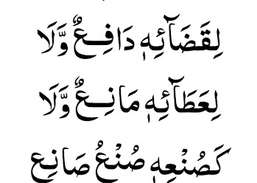 لِقَضَآئِهٖ دَافِعٌ وَّلَا
لِعَطَآئِهٖ مَانِعٌ وَّلَا
كَصُنْعِهٖ صُنْعُ صَانِعٍ